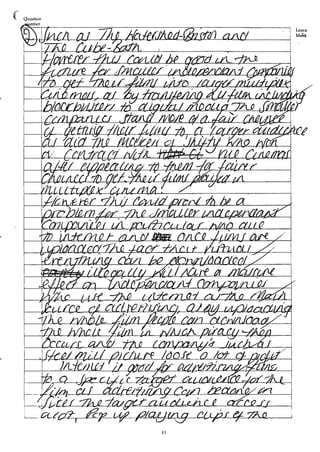 Question
Number
Leave
blank
2) Such as The Watershed-Bristol and
The Cube-Bath.
However this could be good in the
future for smaller independant companies
to get their films into larger multiplex
cinemas, as by transfering all film including
blockbusters to digital media The smaller
companies stand more of a fair chance
of getting their films to a larger audience
as did The makers of Shifty who won
a contract with vue cinemas
after appealing to them for fairer
chances to get their films played in
multiplex cinema.
However This could prove to be a
problem for The smaller independant
companies in particular who due
to internet and once films are
uploaded The fact their virtual
everything can be downloaded
illegally will have a massive
effect on independant companies
who use the internet as the main
source of advertising, as by uploading
The whole film people can download
the whole film in which piracy then
occurs and the company's such as
Steel mill picture loose a lot of profit
Internet is good for advertising films
to a specific target audience for the
film as advertising can be done on
sites The target audience access
a lot, Pop up playing clips of the
11